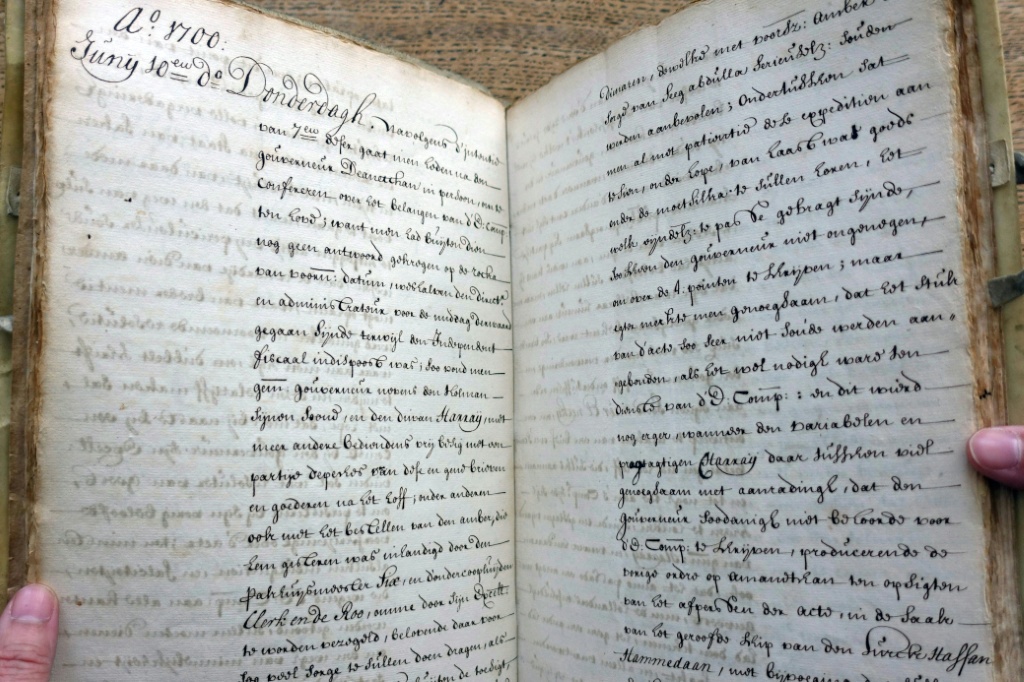 Aº. 1700:
Junij 10en dº Donderdagh, navolgens d'intentie
van 7en deser gaat men heden na den
gouverneur Deanetchan, in persoon, om te
Confereren, over het belangen van d'E: Comp
ten hove; want men had buijten dien
nog geen antwoord gekregen op de
van voorm: datum, weshalven den direct
en administrateur voor de middag derwaard
gegaan sijnde terwijl den Independent
fiscaal indispoost was; soo vond men
gem: gouverneur nevens den
sijnen soond, en den divan Harraij, met
meer andere bediendens vrij besig met een
partije depeches van dese en gene brieven
en goederen na het hoff; onder anderen
ook met het bestellen van den amber, die
hem gisteren was inhandigd door den
pakhuijsmeester Six, en d'ondercoopluijden
Clerk en de Roo, omme door sijn Excell
te worden versegeld, belovende daar voor
soo veel sorge te sullen doen dragen, als
Dimaren, dewelke met voorsz: amber
soge van seeg abdulla serieuselz: souden
werden aanbevolen; ondertusschen sat
men al met patientie de expeditien aan
te sien, onder hope, van haast wat goeds
onder de te sullen horen, het
welk eijndelz: te pas de gebragt sijnde,
soo scheen den gouverneur niet ongenegen,
om over de 4: pointen te schrijven; maar
egter merkte men genoegsaam, dat het stuk
van d'acte, soo seer niet soude werden aan-
gebonden, als het wel nodigh ware ten
dienste van d'E. Comp: ; en dit wierd
nog erger, wanneer den variabelen en
pragtagtigen Harraij daar tusschen viel
genoegsaam met aanradingh, dat den
gouverneur soodanigh niet beloorde voor
d'E. Comp: te schrijven, producerende de
vorige ordre op amanathan ten opsigten
van het afperssen der acte, in de saak
van het geroofde schip van den Turck Hassan
Hammedaan, met bijvoeging